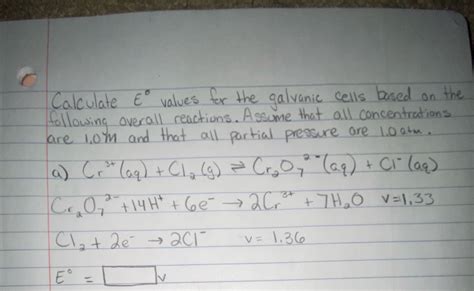 Calculate E° values for the galvanic cells based on the
following overall reactions. Assume that all concentrations
are 1.0 M and that all partial pressure are 1.0 atm.
a) Cr³⁺(aq) + Cl₂(g) ⇌ Cr₂O₇²⁻(aq) + Cl⁻(aq)
Cr₂O₇²⁻ + 14H⁺ + 6e⁻ → 2Cr³⁺ + 7H₂O V=1.33
Cl₂ + 2e⁻ → 2Cl⁻ V= 1.36
E° = V